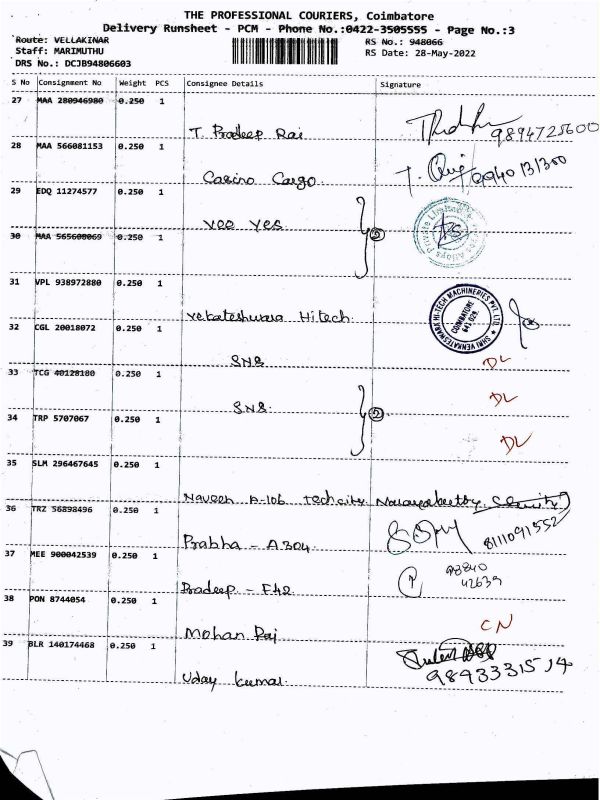 THE PROFESSIONAL COURIERS, Coimbatore
Delivery Runsheet - PCM - Phone No.:0422-3505555 - Page No.:3
Route: VELLAKINAR
RS No.: 948066
Staff: MARIMUTHU
RS Date: 28-May-2022
DRS No.: DCJB94806603
S No Consignment No Weight PCS Consignee Details Signature
27 MAA 280946980 0.250 1
T. Pradeep Raj 9894725600
28 MAA 566081153 0.250 1
Casino Cargo 9940131300
29 EDQ 11274577 0.250 1
Vee Yes
30 MAA 565608069 0.250 1
31 VPL 938972880 0.250 1
Vekateshwara Hitech
SHRI VENKATESWARA HI-TECH MACHINERIES PVT. LTD.
COIMBATORE
641 029.
32 CGL 20018072 0.250 1
SNS DL
33 TCG 40128180 0.250 1
SNS DL
34 TRP 5707067 0.250 1
DL
35 SLM 296467645 0.250 1
Naveen A-106 Techcity
36 TRZ 56898496 0.250 1
Prabha - A304 8111091552
37 MEE 900042539 0.250 1
Pradeep - F42 98840
42639
38 PON 8744054 0.250 1
Mohan Raj CN
39 BLR 140174468 0.250 1
Uday kumar 9893331514